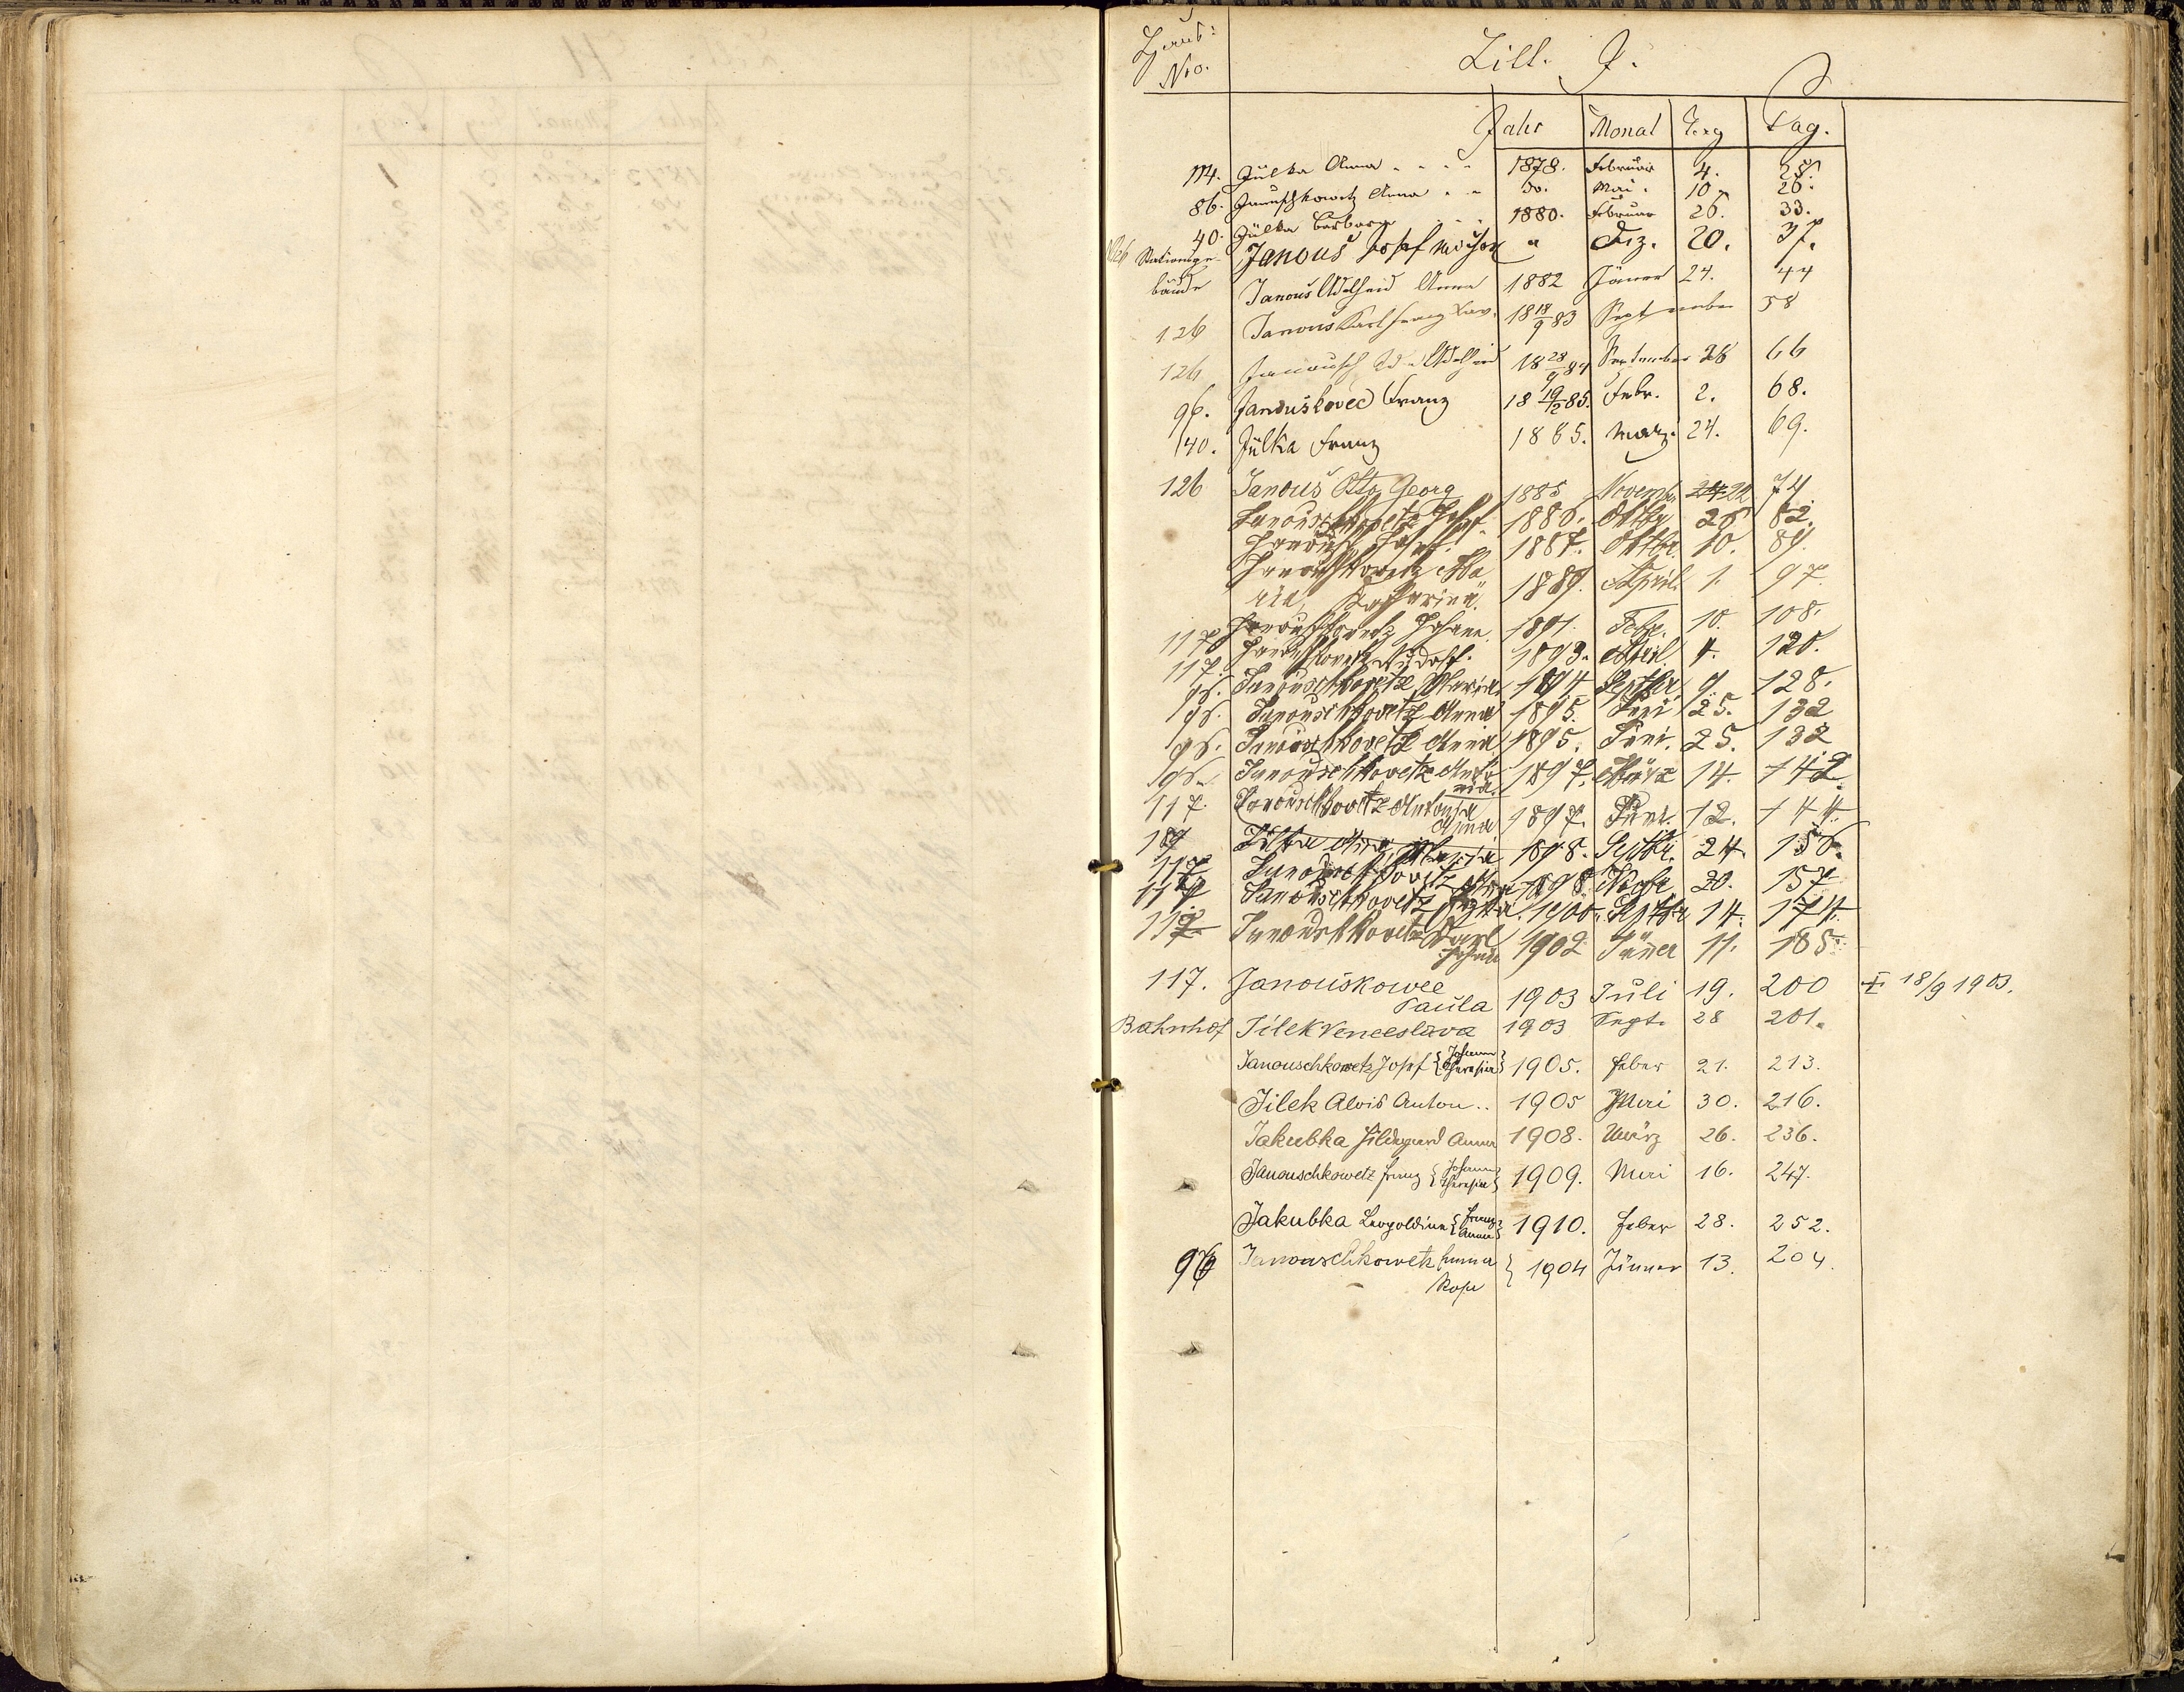 Haus
Nro.
Litt. J.
Jahr Monat Tag Pag.
114. Jülka Anna 1878. Februar 4. 28.
86. Januschkowetz Anna do. Mai. 10. 28.
40. Jülka Barbara 1880. Februar 26. 33.
Stationsge- Janouš Josef " Dez. 20. 37.
bäude Janouš Adelheid Anna 1882 Jänner 24. 44
126 Janouš Karl Franz Xav. 18 18/9 83 September 58
126 Janousch Adelheid 18 28/9 84 September 28 66
96. Janouškovec Franz 18 19/2 85. Febr. 2. 68.
140. Jülka Franz 1885. März. 24. 69.
126 Janouš Otto Georg 1885 Novemb. 22 74
Janouschkowetz Josef 1886. Oktbr 28 82.
Janousch Josef. 1887. Oktbr. 10. 89.
Janouschkowetz Ma
ria, Katharina. 1889. April 1. 97.
117 Janouschkowetz Johann. 1891. Febr. 10. 108.
117. Janouschkowetz Rudolf. 1893. April. 4. 120.
98. Janouschkovetz Maria 1894. Septbr. 9. 128.
98. Janouschkovetz Anna 1895. Juni 25. 132
98. Janouschkovetz Anna 1895. Juni. 25. 132
98. Janouschkovetz Anto
nia. 1897. März 14. 142.
117. Janouschkovetz Antonia
Anna 1897. Juni. 12. 144.
187 Maria 1898. Septbr. 24. 156.
117 Janouschkovetz 1898. Novbr. 20. 157
117 Janouschkovetz 1900. Septbr 14. 174.
117 Janouschkovetz Karl
Johann 1902 Jänner 11. 185.
117. Janouškowec
Paula 1903 Juli 19. 200 18/9 1903.
Bahnhof Jilek Venceslava 1903 Sept. 28 201.
Janouschkowetz Josef {Johann Theresia} 1905. Feber 21. 213.
Jilek Alois Anton.. 1905 Mai 30. 216.
Jakubka Hildegard Anna 1908. März 26. 236.
Janouschkowetz Franz {Johann Theresia} 1909. Mai 16. 247.
Jakubka Leopoldine {Franz Anna} 1910. Feber 28. 252.
96 Janouschkowetz Emma
Rosa } 1904 Jänner 13. 204.